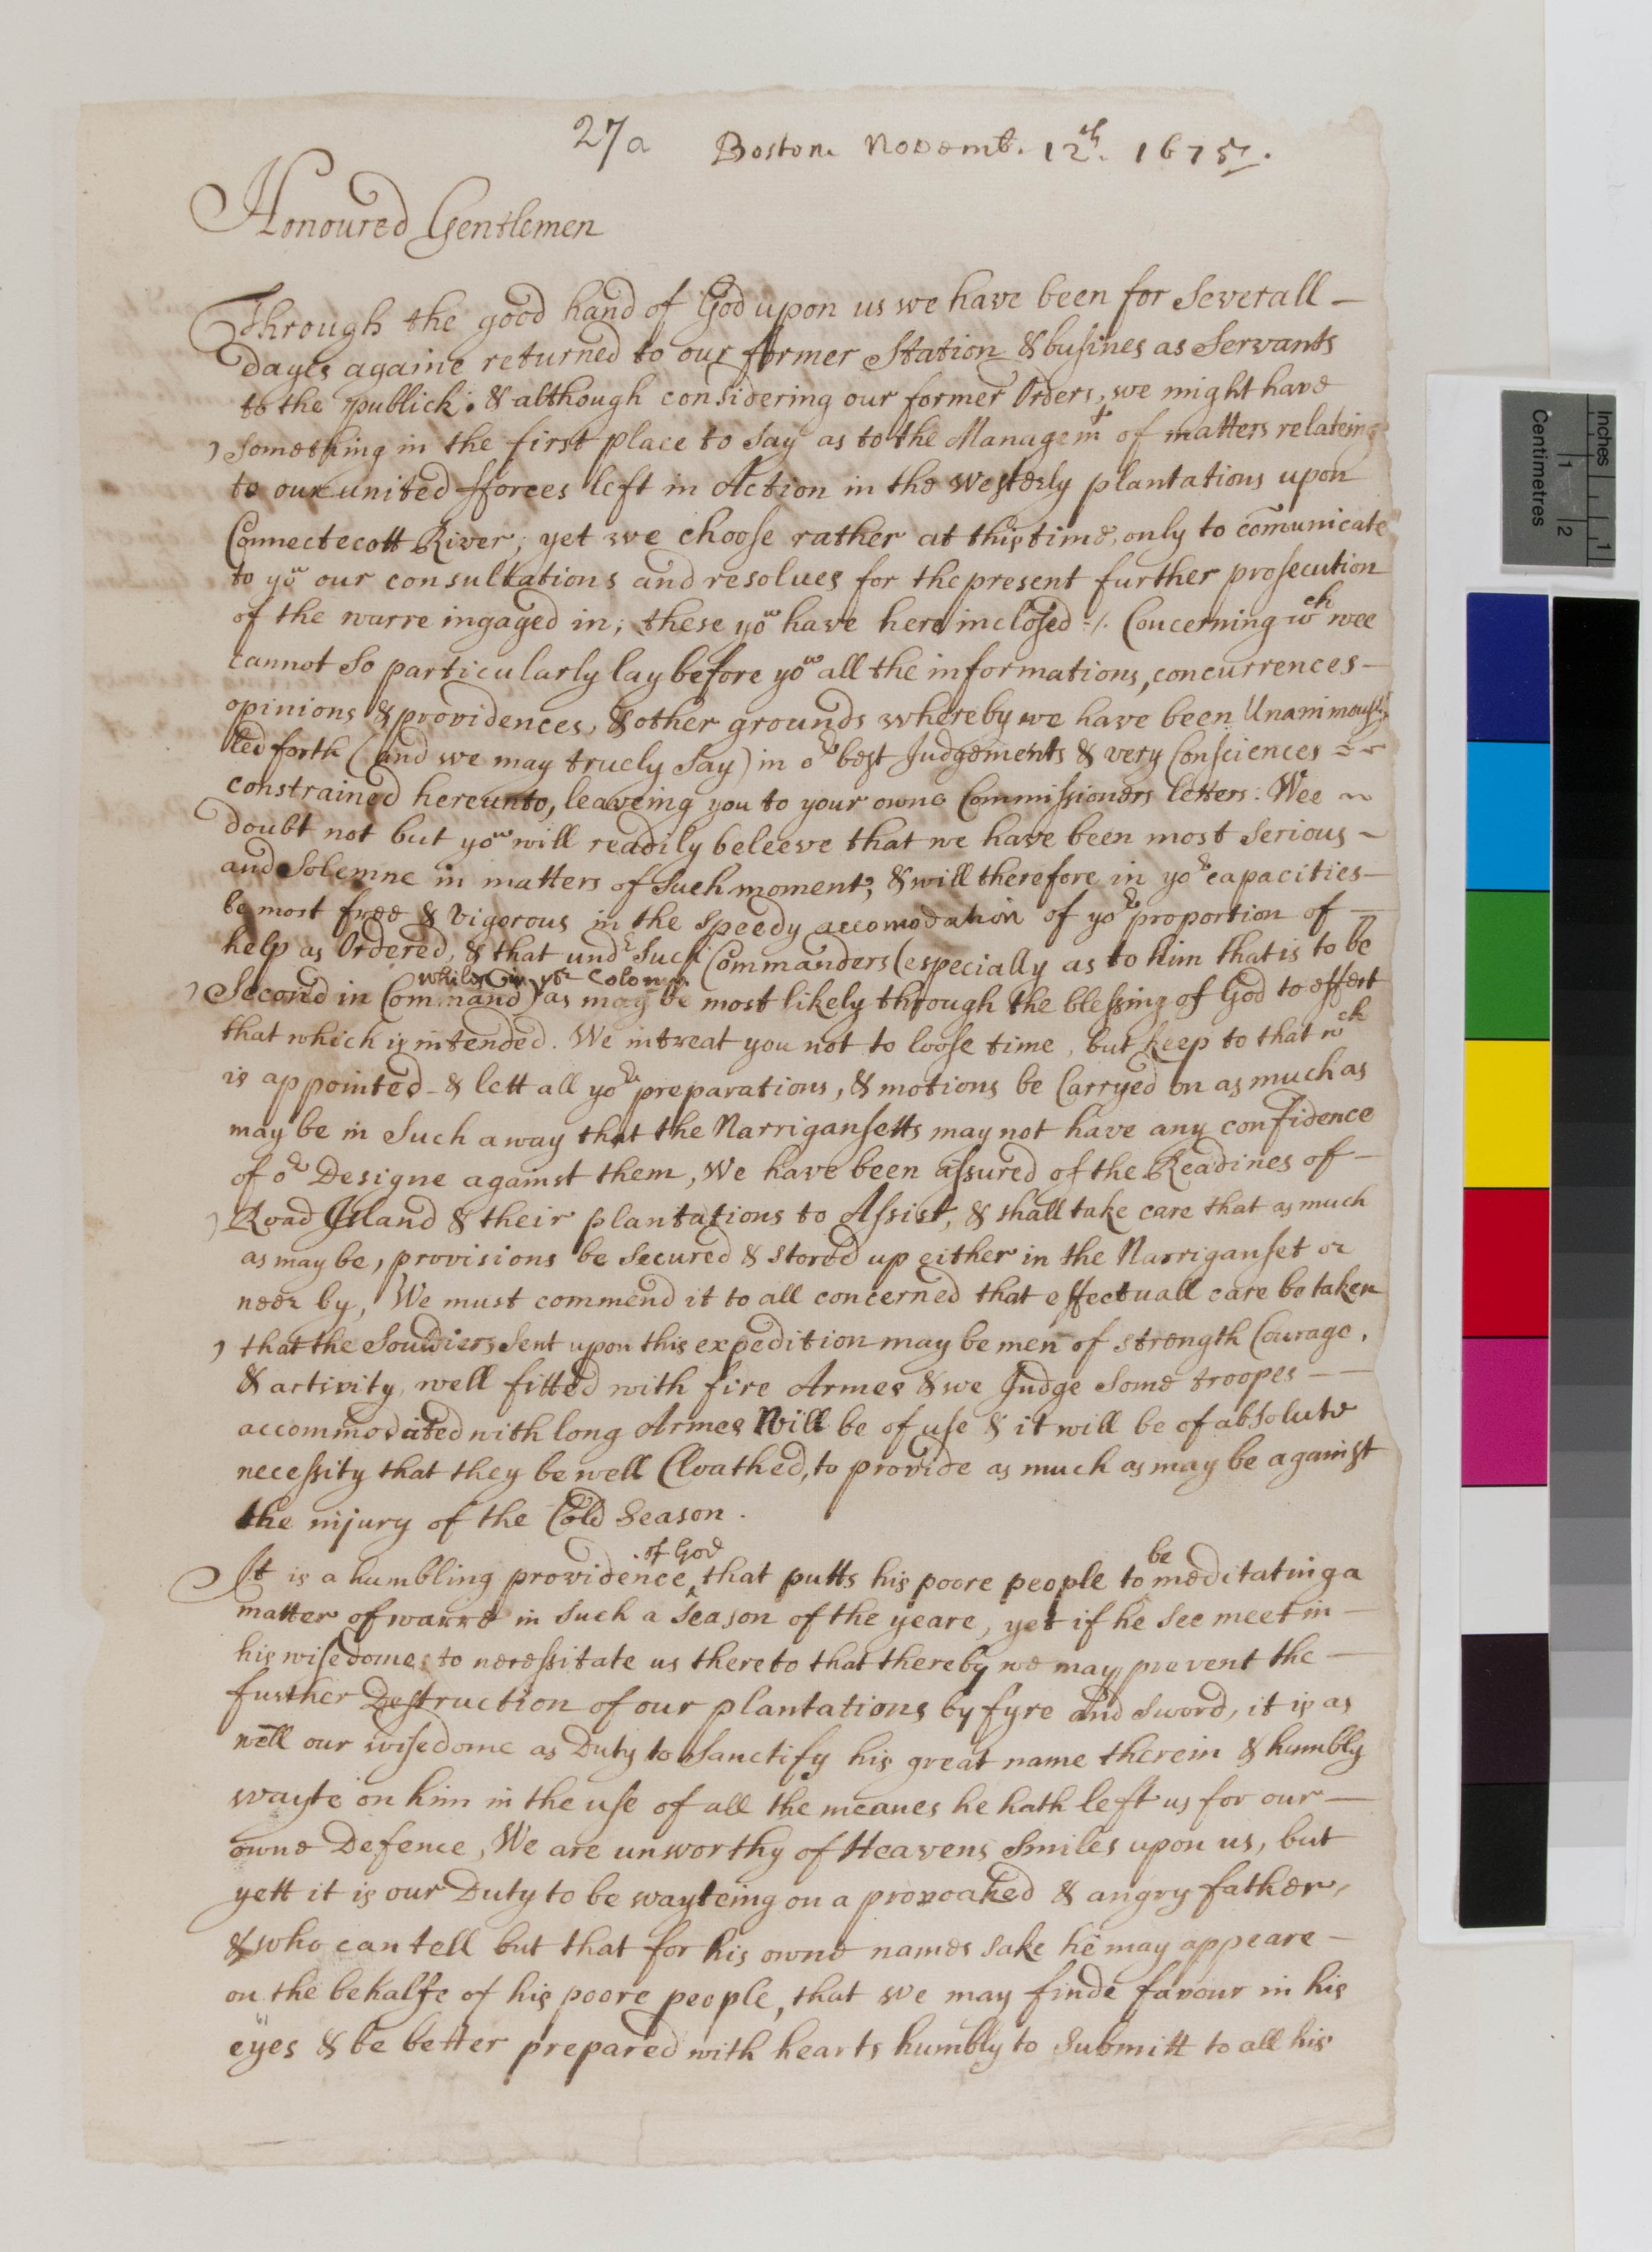 27a Boston Novemb. 12th. 1675.
Honoured Gentlemen
Through the good hand of God upon us we have been for Severall
dayes againe returned to our former Station & busines as Servants
to the publick: & although considering our former Orders, we might have
something in the first place to say as to the Managemt of matters relateing
to our united fforces left in Action in the westerly plantations upon
Connectecott River; yet we choose rather at this time, only to comunicate
to you our consultations and resolves for the present further prosecution
of the warre ingaged in; these you have here inclosed ./. Concerning wch wee
cannot so particularly lay before you all the informations, concurrences
opinions & providences, & other grounds whereby we have been Unanimously
led forth (and we may truely say) in or best Judgements & very Consciences
constrained hereunto, leaveing you to your owne Commissioners letters: Wee
doubt not but you will readily beleeve that we have been most serious
and Solemne in matters of such moment; & will therefore in yor capacities
be most free & vigorous in the speedy accomodation of yor proportion of
help as Ordered, & that undr Such Commanders (especially as to him that is to be
whilst in yor Colony
Second in Command) as may be most likely through the blessing of God to effect
that which is intended. We intreat you not to loose time, but keep to that wch
is appointed & lett all yor preparations, & motions be Carryed on as much as
may be in such a way that the Narrigansetts may not have any confidence
of or Designe against them, We have been assured of the Readines of
Road Island & their plantations to Assist, & shall take care that as much
as may be, provisions be secured & stored up either in the Narriganset or
neer by, We must commend it to all concerned that effectuall care be taken
that the Souldiers sent upon this expedition may be men of strength Courage,
& activity, well fitted with fire Armes & we Judge some troopes
accommodated with long Armes Will be of use & it will be of absolute
necessity that they be well Cloathed, to provide as much as may be against
the injury of the Cold season.
of God be
It is a humbling providence, that putts his poore people to meditating a
matter of warre in such a season of the yeare, yet if he see meet in
his wisedome to necessitate us thereto that thereby we may prevent the
further Destruction of our plantations by fyre and sword, it is as
well our wisedome as Duty to Sanctify his great name therein & humbly
wayte on him in the use of all the meanes he hath left us for our
owne Defence, We are unworthy of Heavens Smiles upon us, but
yett it is our Duty to be wayteing on a provoaked & angry father,
& who can tell but that for his owne names sake he may appeare
on the behalfe of his poore people, that we may finde favour in his
eyes & be better prepared with hearts humbly to submitt to all his
Inches
1
Centimetres
1
2